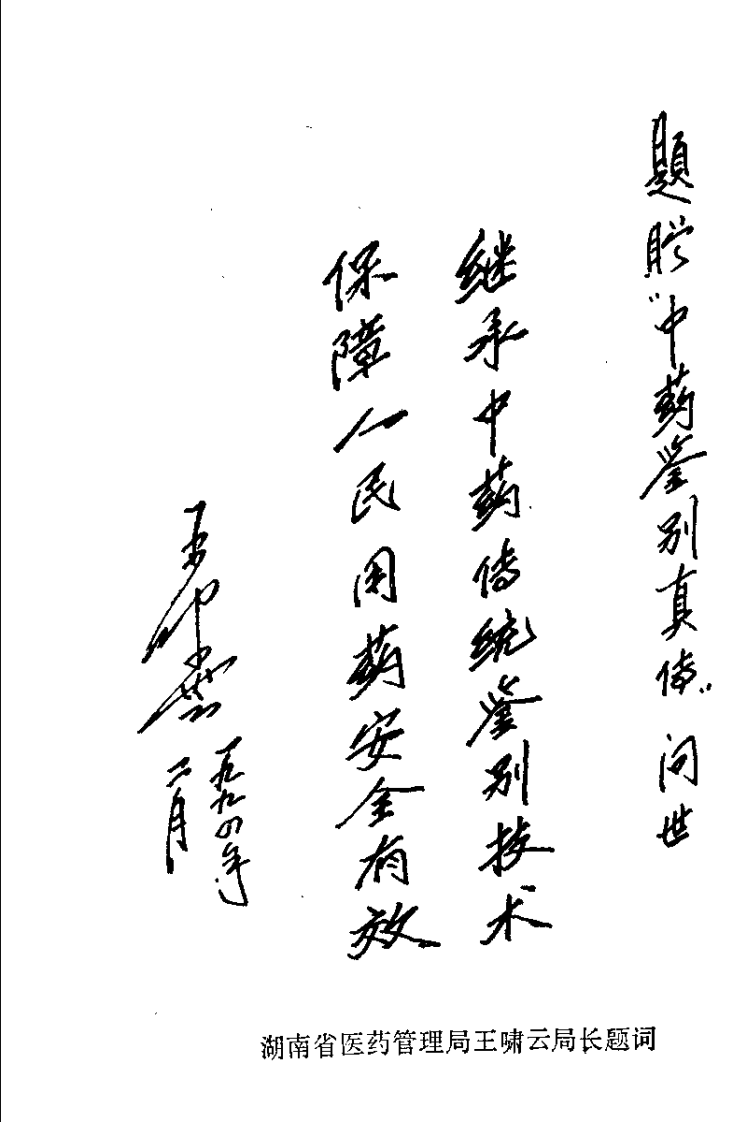 题贈“中药鉴别真传”问世
继承中药传统鉴别技术
保障人民用药安全有效
王啸云
一九九四年
二月
湖南省医药管理局王啸云局长题词